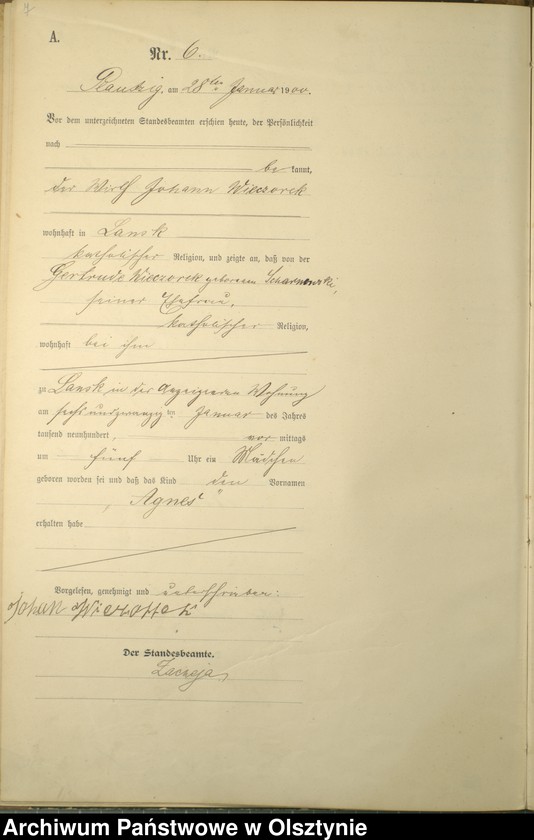 A.
Nr. 6.
am 28ten Januar 1900.
Vor dem unterzeichneten Standesbeamten erschien heute, der Persönlichkeit
nach
be kannt,
der Wirth Johann Wieczorek
wohnhaft in Lansk
katholischer Religion, und zeigte an, daß von der
Gertrude Wieczorek geborenen Scharnowski,
seiner Ehefrau,
katholischer Religion,
wohnhaft bei ihm
zu Lansk in der Wohnung
am sechsundzwanzig ten Januar des Jahres
tausend neunhundert, vor mittags
um fünf Uhr ein Mädchen
geboren worden sei und daß das Kind den Vornamen
„Agnes“
erhalten habe
Vorgelesen, genehmigt und unterschrieben:
Der Standesbeamte.
Archiwum Państwowe w Olsztynie